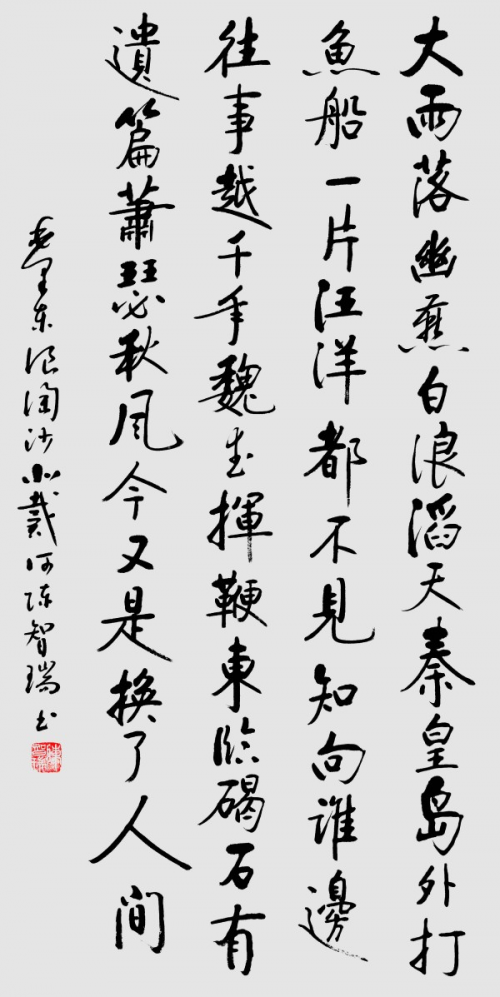 大雨落幽燕白浪滔天秦皇岛外打
魚船一片汪洋都不見知向谁邊
往事越千年魏武揮鞭東临碣石有
遺篇蕭瑟秋风今又是换了人间
毛泽东浪淘沙北戴河陈智瑞书